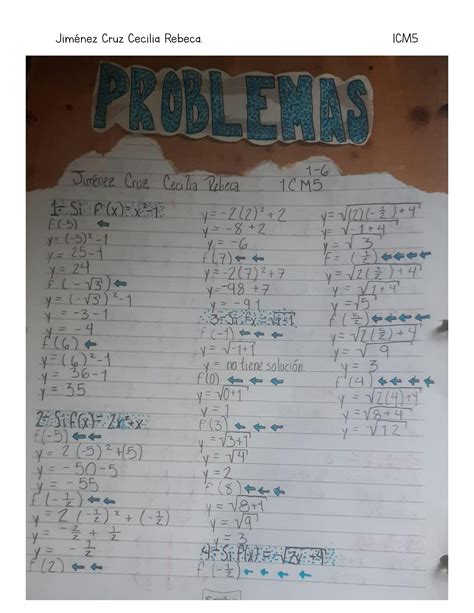 Jiménez Cruz Cecilia Rebeca. 1CM5
PROBLEMAS
1-6
Jiménez Cruz Cecilia Rebeca 1CM5
1= Si f(x)= x²-1
f(-5) ←
y= (-5)²-1
y= 25-1
y= 24
f(-√3) ←
y= (-√3)²-1
y= -3-1
y= -4
f(6) ←
y= (6)²-1
y= 36-1
y= 35
2= Si f(x)= 2x²+x
f(-5) ← ←
y= 2(-5)²+(5)
y= -50-5
y= -55
f(-1/2) ← ←
y= 2(-1/2)²+(-1/2)
y= -2/2 + 1/2
y= -1/2
f(2) ← ←
y= -2(2)²+2
y= -8+2
y= -6
f(7) ← ←
y= -2(7)²+7
y= -98+7
y= -91
3= Si fx= √x+1
f(-1) ← ← ←
y= √-1+1
y= no tiene solución
f(0) ← ← ←
y= √0+1
y= 1
f(3) ← ← ←
y= √3+1
y= √4
y= 2
f(8) ← ← ←
y= √8+1
y= √9
y= 3
4= Si f(x)= √2x+4
f(-1/2) ← ← ← ←
y= √(2)(-1/2)+4
y= √-1+4
y= √3
f=(1/2) ← ← ← ←
y= √2(1/2)+4
y= √1+4
y= √5
f(5/2) ← ← ← ←
y= √2(5/2)+4
y= √9
y= 3
f(4) ← ← ← ←
y= √2(4)+4
y= √8+4
y= √12